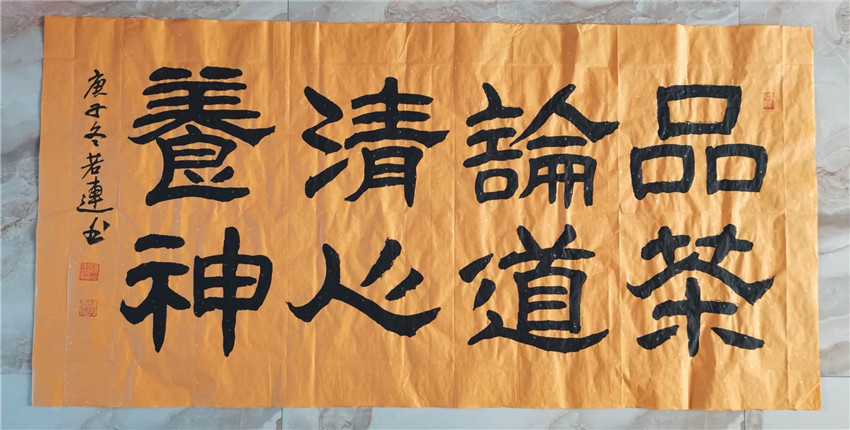 品茶
論道
清心
養神
庚子冬若連书